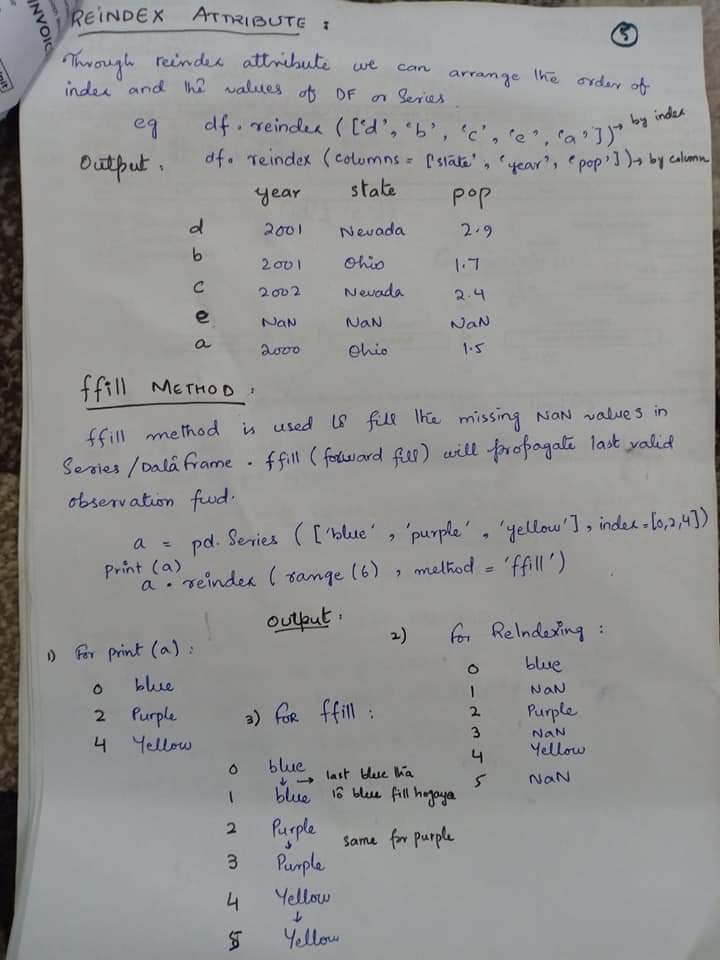 INVOIC
REINDEX ATTRIBUTE :
5
Through reindex attribute we can arrange the order of
index and the values of DF or Series
eg df. reindex (['d', 'b', 'c', 'e', 'a']) → by index
df. reindex (columns = ['state', 'year', 'pop']) → by column
Output :
year state pop
d 2001 Nevada 2.9
b 2001 Ohio 1.7
c 2002 Nevada 2.4
e NaN NaN NaN
a 2000 Ohio 1.5
ffill METHOD :
ffill method is used to fill the missing NaN values in
Series / Dataframe . ffill (forward fill) will propagate last valid
observation fwd.
a = pd. Series (['blue', 'purple', 'yellow'], index = [0,2,4])
Print (a)
a . reindex ( range (6) , method = 'ffill')
Output :
1) For print (a) :
0 blue
2 Purple
4 Yellow
2) For ReIndexing :
0 blue
1 NaN
2 Purple
3 NaN
4 Yellow
5 NaN
3) For ffill :
0 blue
↓ → last blue tha
1 blue to blue fill hogaya
2 Purple
↓ same for purple
3 Purple
4 Yellow
↓
5 Yellow